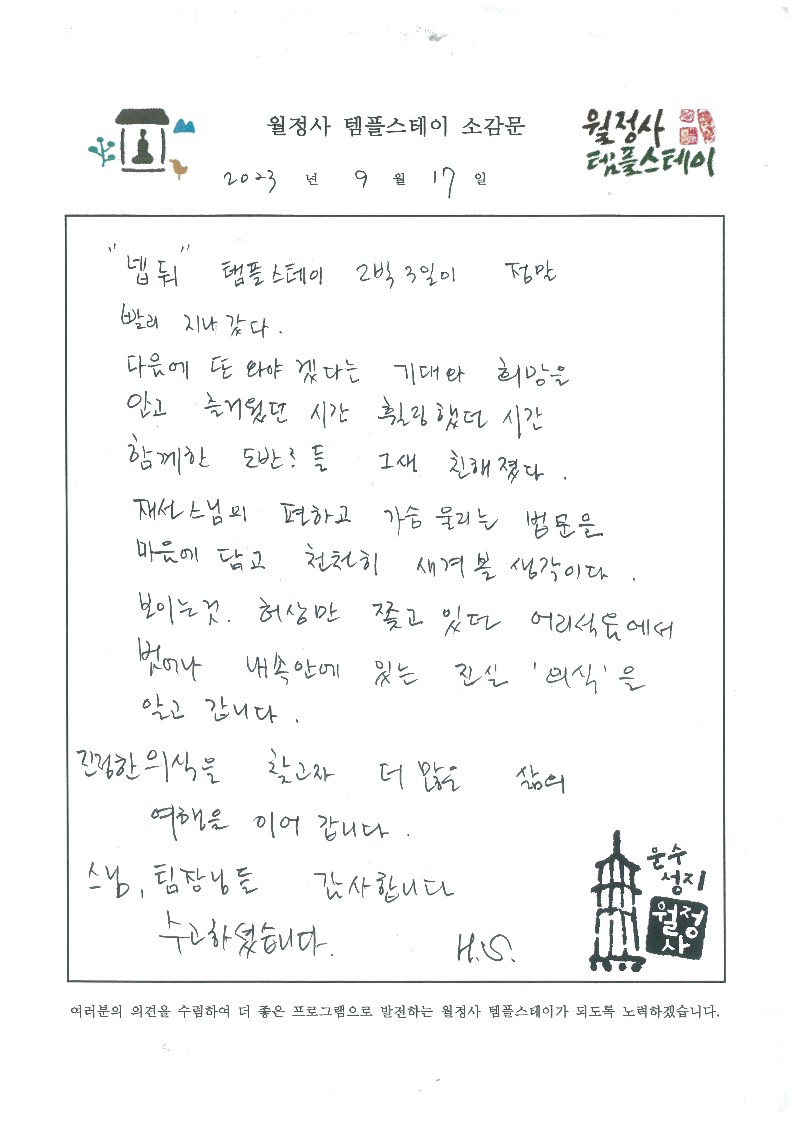 월정사 템플스테이 소감문
월정사
템플스테이
2023 년 9 월 17 일
"냅둬" 탬플스테이 2박3일이 정말
빨리 지나갔다.
다음에 또 와야 겠다는 기대와 희망을
안고 즐거웠던 시간 휠링했던 시간
함께한 도반들 그새 친해졌다.
스님의 편하고 가슴 울리는 법문을
마음에 담고 천천히 새겨볼 생각이다.
보이는것. 허상만 쫓고 있던 어리석음에서
벗어나 내속안에 있는 진실 '의식'을
알고 갑니다.
진정한 의식을 찾고자 더 많은 삶의
여행을 이어 갑니다.
스님, 팀장님들 감사합니다
수고하셨습니다. H.S.
문수
성지
월정
사
여러분의 의견을 수렴하여 더 좋은 프로그램으로 발전하는 월정사 템플스테이가 되도록 노력하겠습니다.